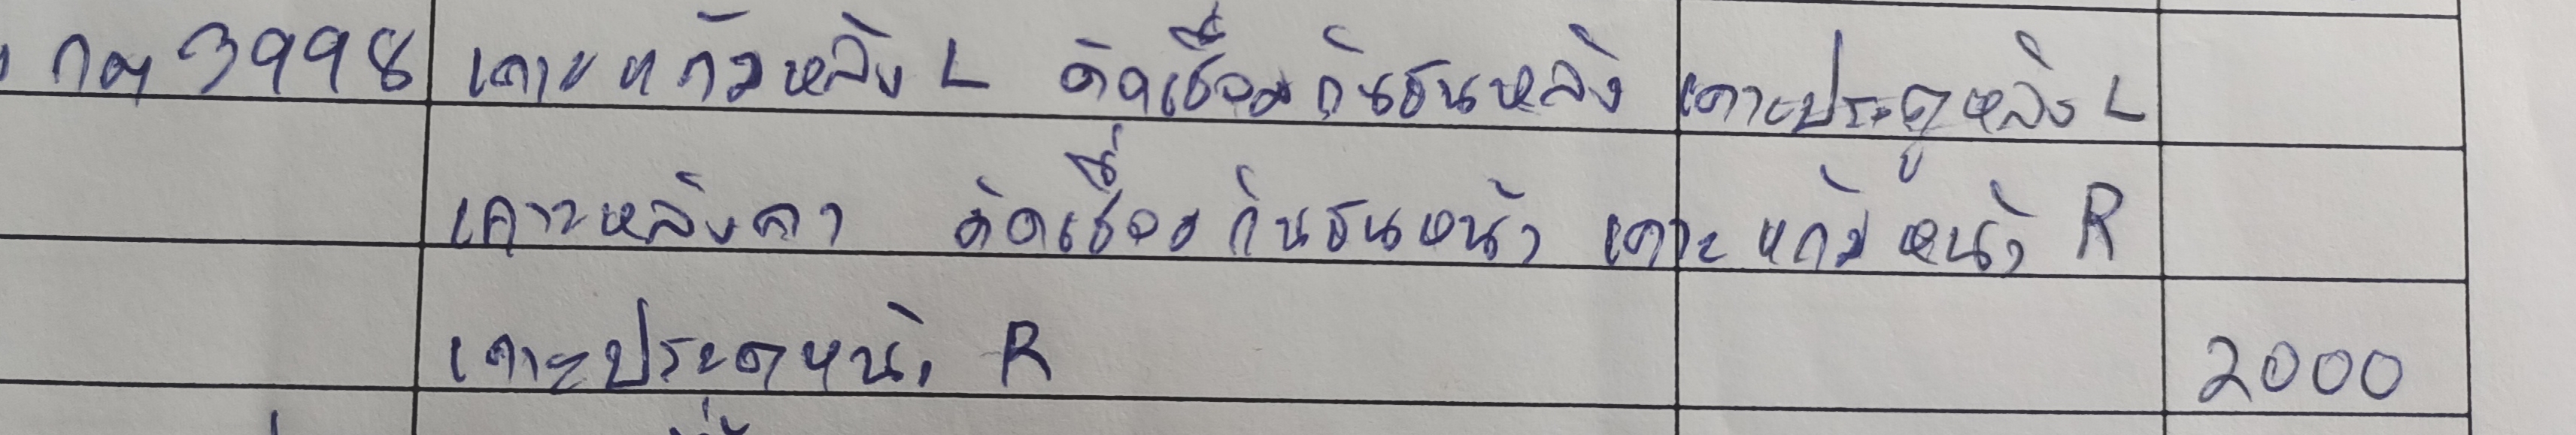 กต 3998 เคาะแก้มหลัง L ตัดเชื่อมกันชนหลัง เคาะประตูหลัง L
เคาะหลังคา ตัดเชื่อมกันชนหน้า เคาะแก้มหน้า R
เคาะประตหน้า R 2000